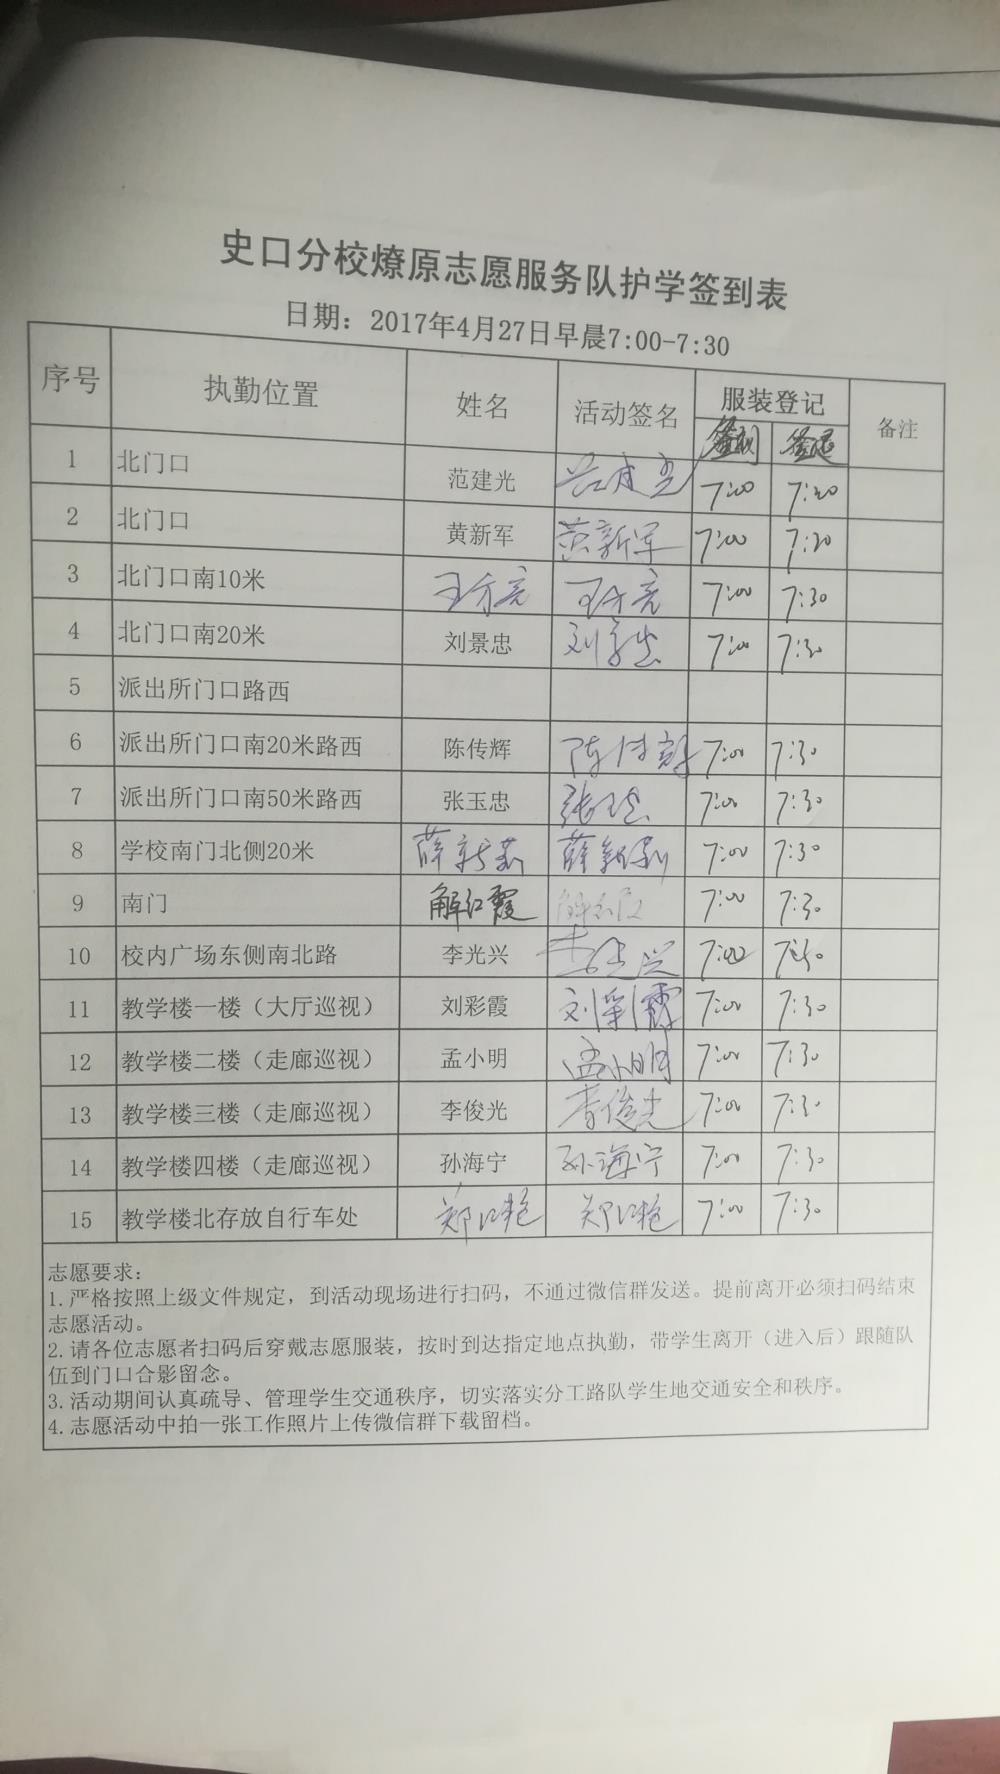 史口分校燎原志愿服务队护学签到表
日期：2017年4月27日早晨7:00-7:30
序号 执勤位置 姓名 活动签名 服装登记 备注
签到 签退
1 北门口 范建光 范建光 7:00 7:30
2 北门口 黄新军 黄新军 7:00 7:30
3 北门口南10米 7:00 7:30
4 北门口南20米 刘景忠 刘景忠 7:00 7:30
5 派出所门口路西
6 派出所门口南20米路西 陈传辉 陈传辉 7:00 7:30
7 派出所门口南50米路西 张玉忠 张玉忠 7:00 7:30
8 学校南门北侧20米 7:00 7:30
9 南门 解红霞 解红霞 7:00 7:30
10 校内广场东侧南北路 李光兴 李光兴 7:00 7:30
11 教学楼一楼（大厅巡视） 刘彩霞 刘彩霞 7:00 7:30
12 教学楼二楼（走廊巡视） 孟小明 孟小明 7:00 7:30
13 教学楼三楼（走廊巡视） 李俊光 李俊光 7:00 7:30
14 教学楼四楼（走廊巡视） 孙海宁 孙海宁 7:00 7:30
15 教学楼北存放自行车处 7:00 7:30
志愿要求：
1.严格按照上级文件规定，到活动现场进行扫码，不通过微信群发送。提前离开必须扫码结束
志愿活动。
2.请各位志愿者扫码后穿戴志愿服装，按时到达指定地点执勤，带学生离开（进入后）跟随队
伍到门口合影留念。
3.活动期间认真疏导、管理学生交通秩序，切实落实分工路队学生地交通安全和秩序。
4.志愿活动中拍一张工作照片上传微信群下载留档。